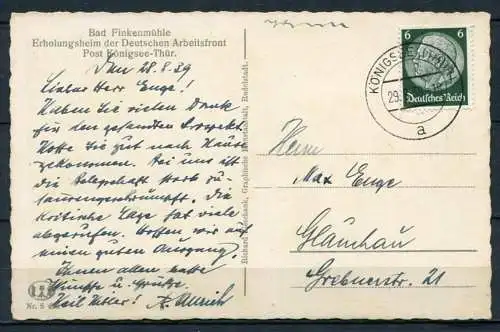 Bad Finkenmühle
Erholungsheim der Deutschen Arbeitsfront
Post Königsee-Thür.
Den 28.8.39
Lieber Herr Enge!
Haben Sie vielen Dank
für den gesandten Prospekt.
Hoffe Sie gut nach Hause
gekommen. Bei uns ist
die Belegschaft stark zu-
sammengeschrumpft. Die
kritische Lage hat viele
abgerufen. Hoffen wir auf
einen guten Ausgang.
Ihnen allen beste
Wünsche u. Grüße
Heil Hitler! A. Ullrich
Nr. 5
Richard Zieschank, Graphische Kunstanstalt, Rudolstadt.
6 6
Deutsches Reich
KÖNIGSEE
29.
a
Herrn
Max Enge
Glauchau
Grebnerstr. 21